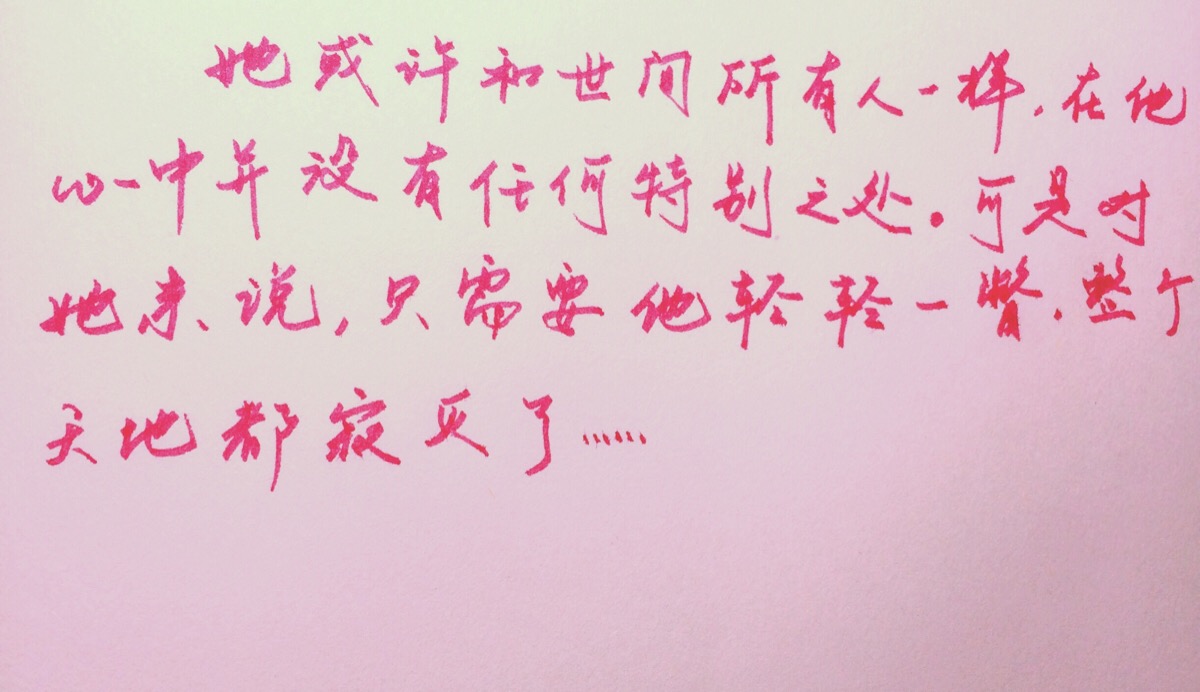 她或许和世间所有人一样,在他
心中并没有任何特别之处。可是对
她来说,只需要他轻轻一瞥,整个
天地都寂灭了……